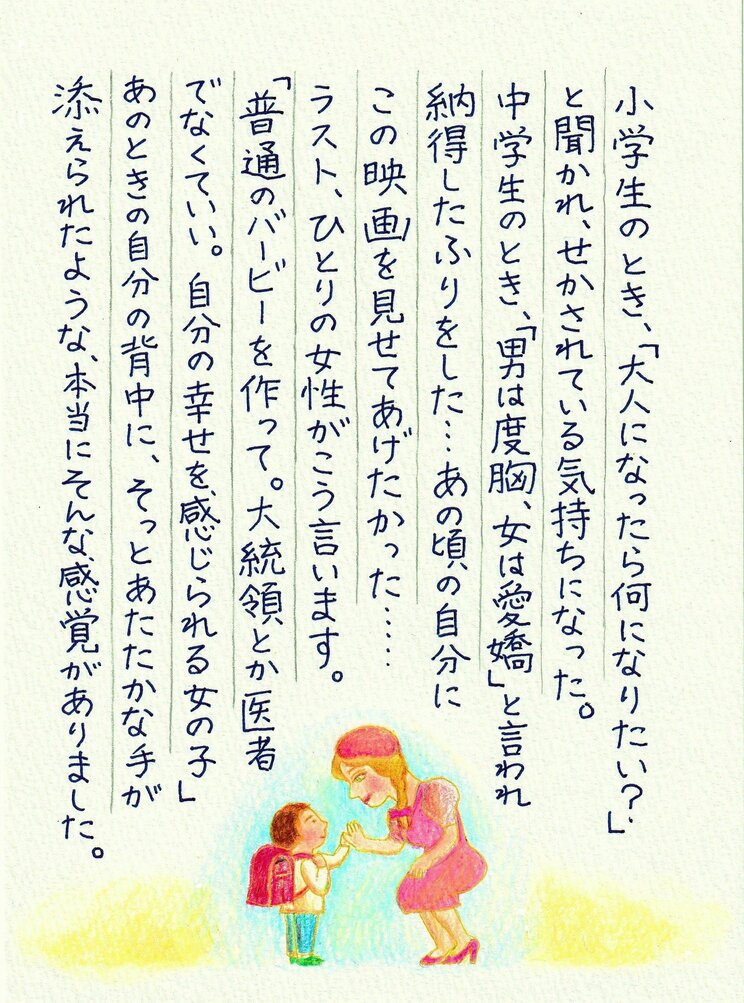 小学生のとき、「大人になったら何になりたい？」
と聞かれ、せかされている気持ちになった。
中学生のとき、「男は度胸、女は愛嬌」と言われ
納得したふりをした…あの頃の自分に
この映画を見せてあげたかった……
ラスト、ひとりの女性がこう言います。
「普通のバービーを作って。大統領とか医者
でなくていい。自分の幸せを、感じられる女の子」
あのときの自分の背中に、そっとあたたかな手が
添えられたような、本当にそんな、感覚がありました。